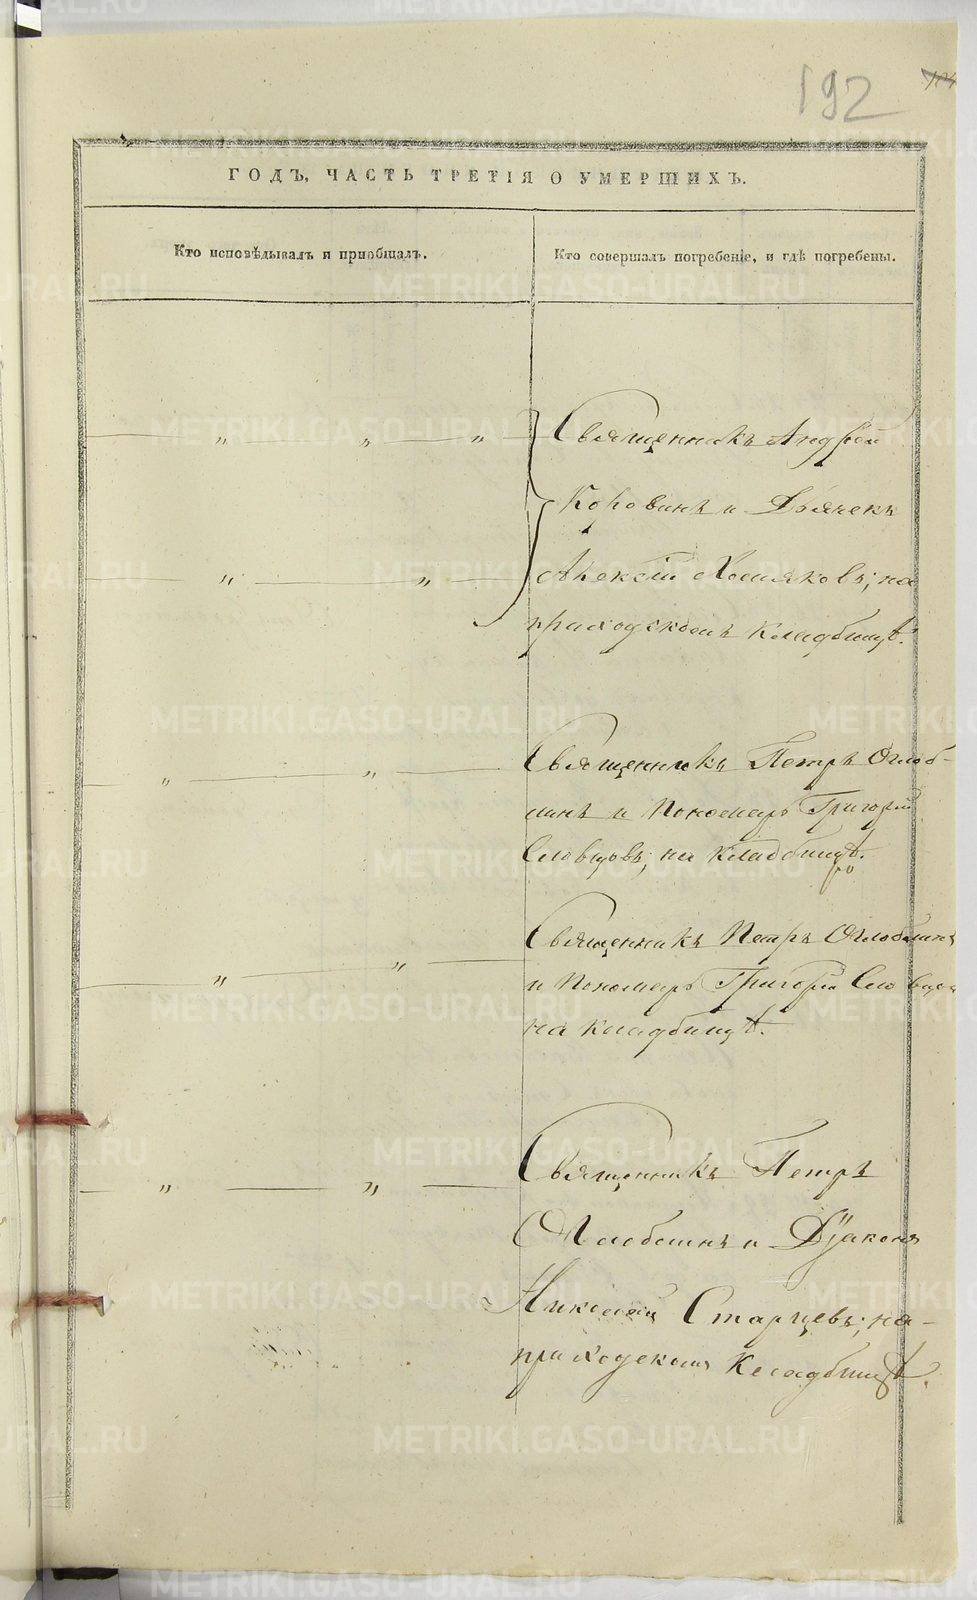 192
ГОДЪ, ЧАСТЬ ТРЕТІЯ О УМЕРШИХЪ.
Кто исповѣдывалъ и пріобщалъ.
Кто совершалъ погребеніе, и гдѣ погребены.
Священникъ Андрей
Коровинъ и Дьячекъ
Алексѣй Хомяковъ; на
приходскомъ кладбищѣ.
Священникъ Петръ Оглоб-
линъ и Пономарь Григорій
Словцовъ; на кладбищѣ.
Священникъ Петръ Оглоблинъ
и Пономарь Григорій Словцов
на кладбищѣ.
Священникъ Петръ
Оглоблинъ и Діаконъ
Николай Старцевъ; на-
приходскомъ кладбищѣ.
METRIKI.GASO-URAL.RU